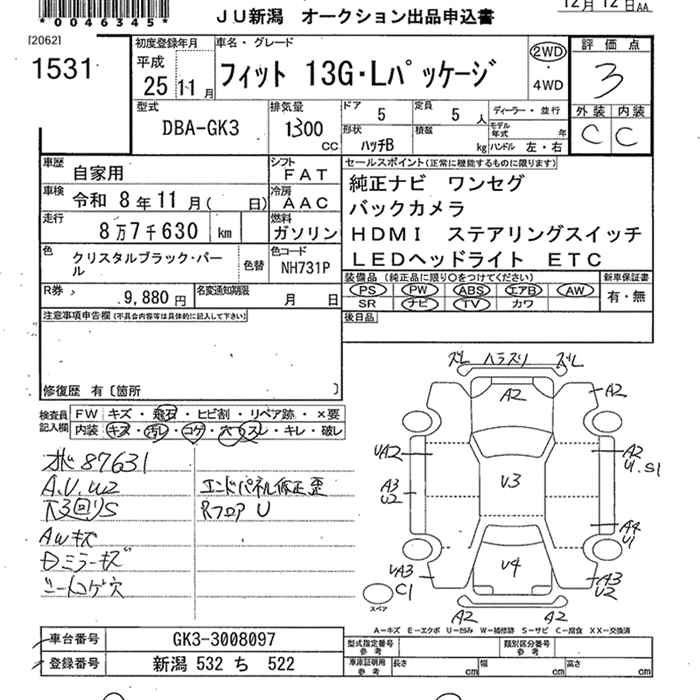 *0046345*
12月12日AA
JU新潟 オークション出品申込書
[2062]
1531
初度登録年月
平成
25 11月
車名・グレード
フィット 13G・Lパッケージ
2WD
・
4WD
評価点
3
型式
DBA-GK3
排気量
1300
CC
ドア
5
定員
5人
ディーラー・並行
形状
ハッチB
積載
kg
モデル年式
年
ハンドル 左・右
外装 内装
C C
車歴
自家用
シフト
FAT
車検
令和 8年11月( 日)
冷房
AAC
走行
8万7千630 km
燃料
ガソリン
色
クリスタルブラック・パール
色替
色コード
NH731P
R券
9,880円
名変通知期限
月 日
セールスポイント(正常に機能するものに限ります)
純正ナビ ワンセグ
バックカメラ
HDMI ステアリングスイッチ
LEDヘッドライト ETC
装備品 (純正品に限り○をつけてください)
新車保証書
PS PW ABS エアB AW
有・無
SR ナビ TV カワ
後日品
注意事項申告欄(不具合内容等は具体的に記入して下さい)
修復歴 有〔箇所 〕
検査員
記入欄
FW キズ・飛石・ヒビ割・リペア跡・×要
内装 キズ・汚れ・コゲ・穴・スレ・キレ・破レ
87631
A.U.W2
下回りS
AWキズ
Dミラーキズ
シートコゲ穴
エンドパネル修正歪
Rフロア U
ズレ ハラズリ ズレ
A2
A2
UA2
A2
U1.S1
A3
U2
U3
A4
U1
UA3
C1
U4
A3
U2
スペア
A2
A2
A―キズ E―エクボ U―凹み W―補修跡 S―サビ C―腐食 XX―交換済
車台番号
GK3-3008097
登録番号
新潟 532 ち 522
型式指定番号
参考
類別区分番号
参考
車庫証明用
参考
長さ
cm
幅
cm
高さ
cm